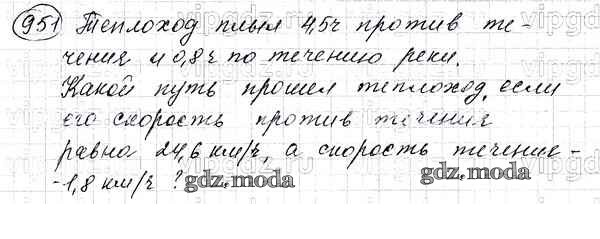 951 Теплоход плыл 4,5ч против те-
чения и 0,8ч по течению реки.
Какой путь прошел теплоход, если
его скорость против течения
равна 24,6 км/ч, а скорость течение -
- 1,8 км/ч ?
gdz.moda
gdz.moda